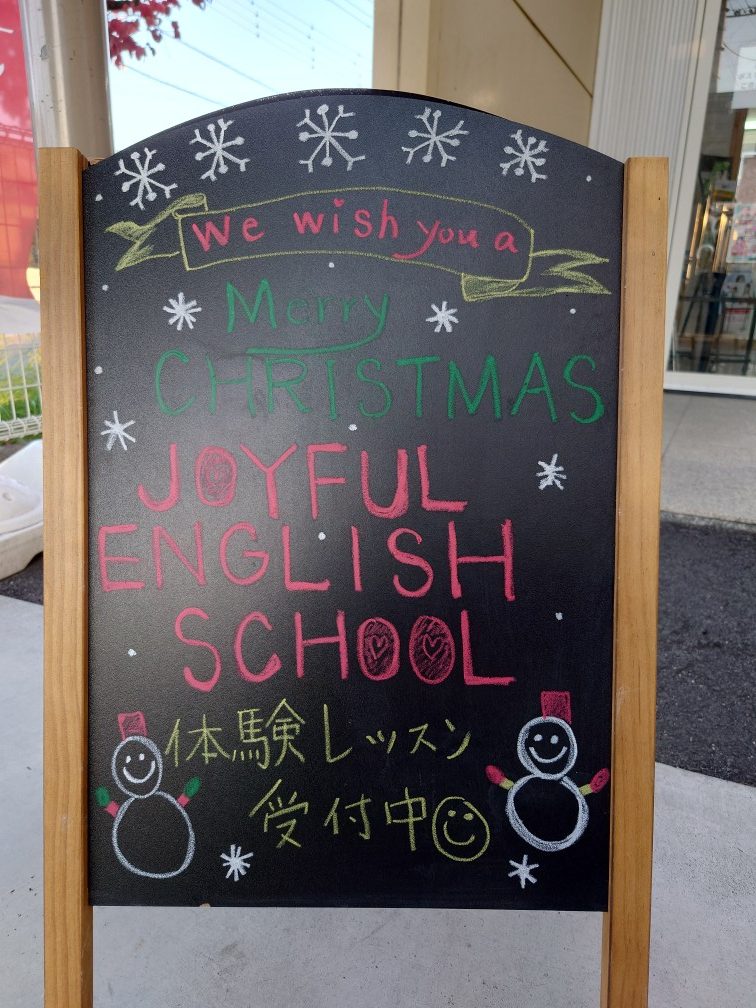 We wish you a
Merry
CHRISTMAS
JOYFUL
ENGLISH
SCHOOL
体験レッスン
受付中